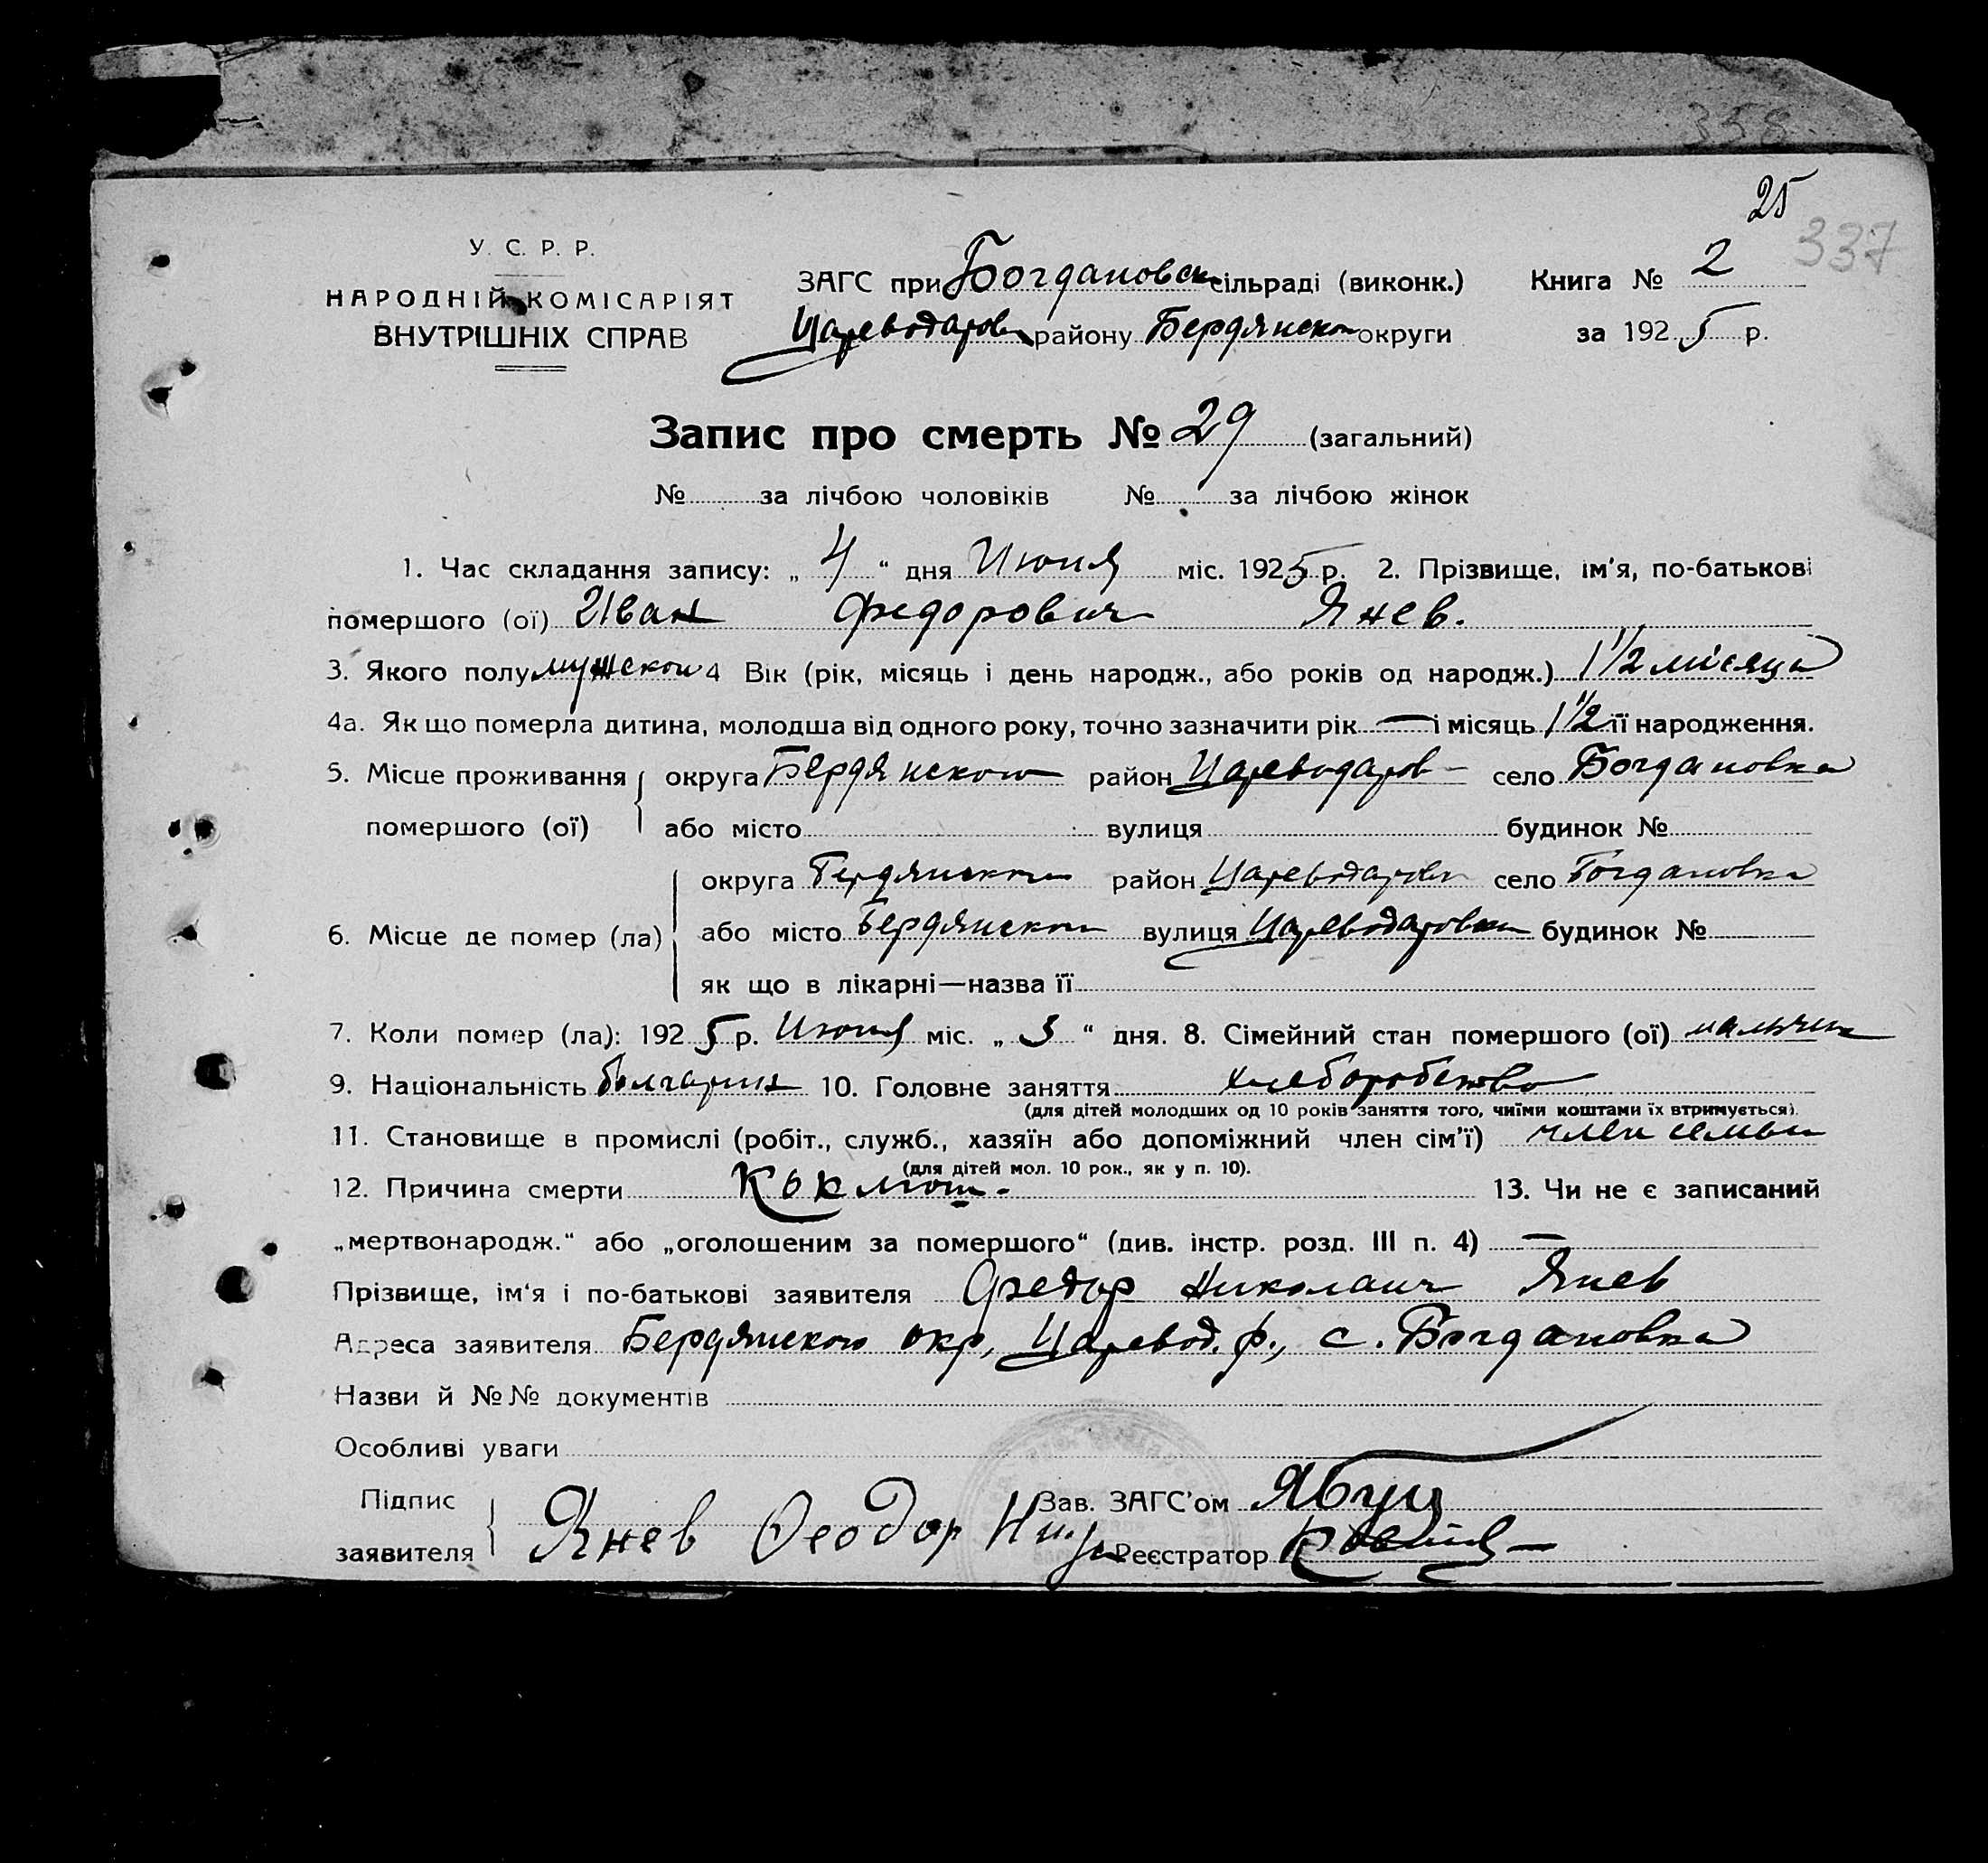 358
25
337
У. С. Р. Р.
НАРОДНІЙ КОМІСАРІЯТ
ВНУТРІШНІХ СПРАВ
ЗАГС при Богдановск сільраді (виконк.) Книга № 2
Цареводаров району Бердянском округи за 1925 р.
Запис про смерть № 29 (загальний)
№ за лічбою чоловіків № за лічбою жінок
1. Час складання запису: „ 4 “ дня Июня міс. 1925 р. 2. Прізвище, ім'я, по-батькові
помершого (ої) Иван Федорович Янев.
3. Якого полу мужской 4 Вік (рік, місяць і день народж., або років од народж.) 1 1/2 місяца
4а. Як що померла дитина, молодша від одного року, точно зазначити рік — і місяць 1 1/2 її народження.
5. Місце проживання округа Бердянского район Цареводаров село Богдановка
помершого (ої) або місто вулиця будинок №
округа Бердянского район Цареводаровск село Богдановка
6. Місце де помер (ла) або місто Бердянском вулиця Цареводаровск будинок №
як що в лікарні—назва її
7. Коли помер (ла): 1925 р. Июня міс. „ 3 “ дня. 8. Сімейний стан помершого (ої) мальчик
9. Національність болгарин 10. Головне заняття хлеборобство
(для дітей молодших од 10 років заняття того, чиїми коштами їх втримується)
11. Становище в промислі (робіт., служб., хазяїн або допоміжний член сім'ї) член семьи
(для дітей мол. 10 рок., як у п. 10).
12. Причина смерти Коклюш. 13. Чи не є записаний
„мертвонародж.“ або „оголошеним за помершого“ (див. інстр. розд. III п. 4) —
Прізвище, ім'я і по-батькові заявителя Федор Николаич Янев
Адреса заявителя Бердянского окр, Царевод. р., с. Богдановка
Назви й №№ документів
Особливі уваги
Підпис Зав. ЗАГС'ом
заявителя Янев Феодор Ник Реєстратор